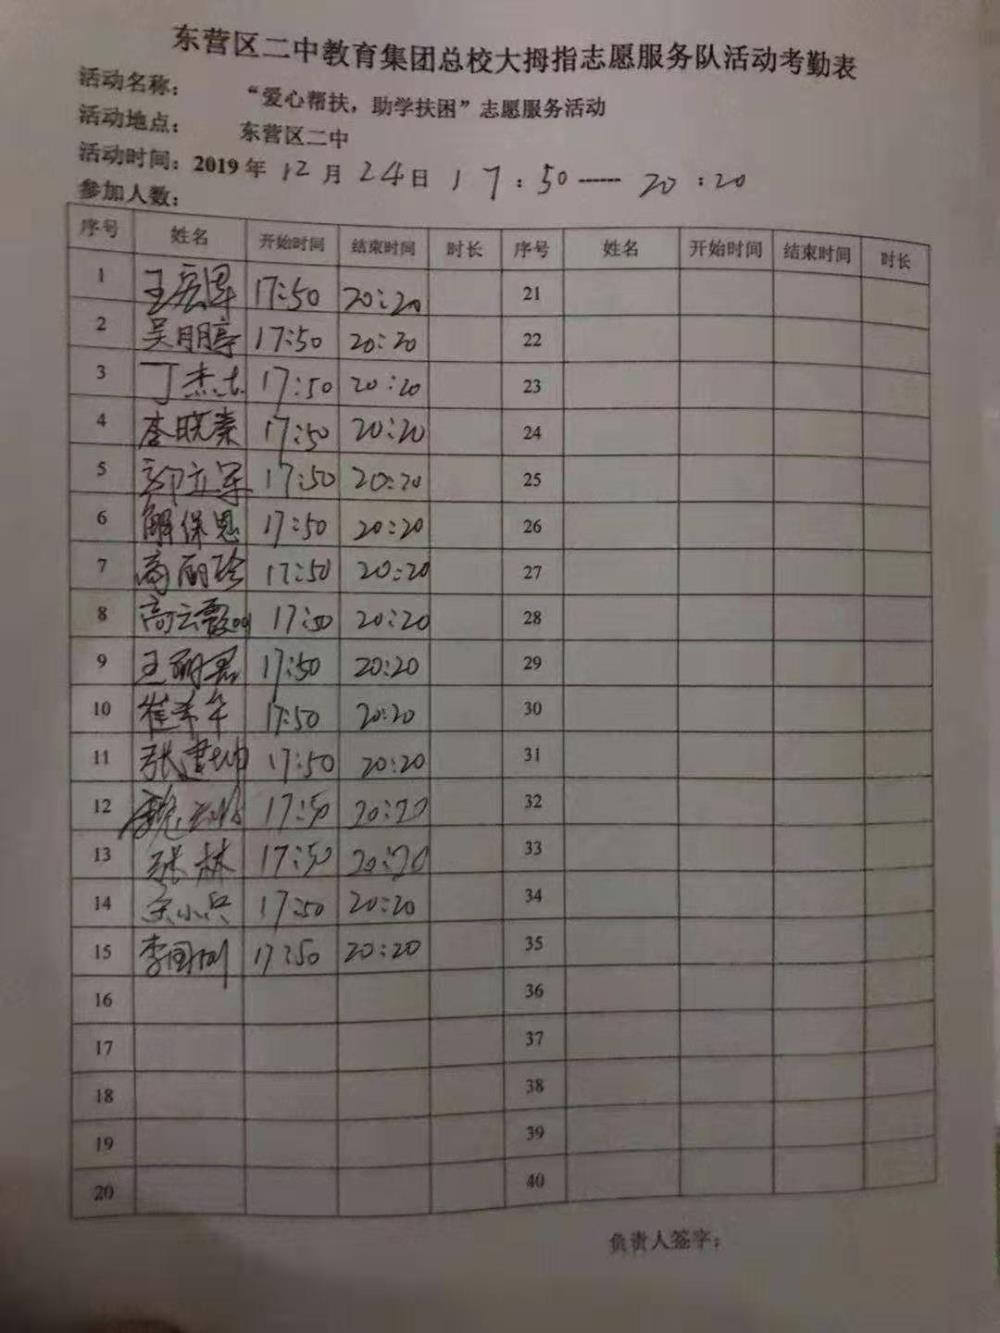 东营区二中教育集团总校大拇指志愿服务队活动考勤表
活动名称： “爱心帮扶，助学扶困”志愿服务活动
活动地点： 东营区二中
活动时间：2019年 12月 24日 17:50------20:20
参加人数：
序号 姓名 开始时间 结束时间 时长 序号 姓名 开始时间 结束时间 时长
1 17:50 20:20 21
2 吴朋亭 17:50 20:20 22
3 丁杰志 17:50 20:20 23
4 李晓秦 17:50 20:20 24
5 郭立军 17:50 20:20 25
6 解保恩 17:50 20:20 26
7 高丽珍 17:50 20:20 27
8 高云霞 17:50 20:20 28
9 王丽君 17:50 20:20 29
10 崔希年 17:50 20:20 30
11 张建坤 17:50 20:20 31
12 17:50 20:20 32
13 张林 17:50 20:20 33
14 宋小兵 17:50 20:20 34
15 李国刚 17:50 20:20 35
16 36
17 37
18 38
19 39
20 40
负责人签字：